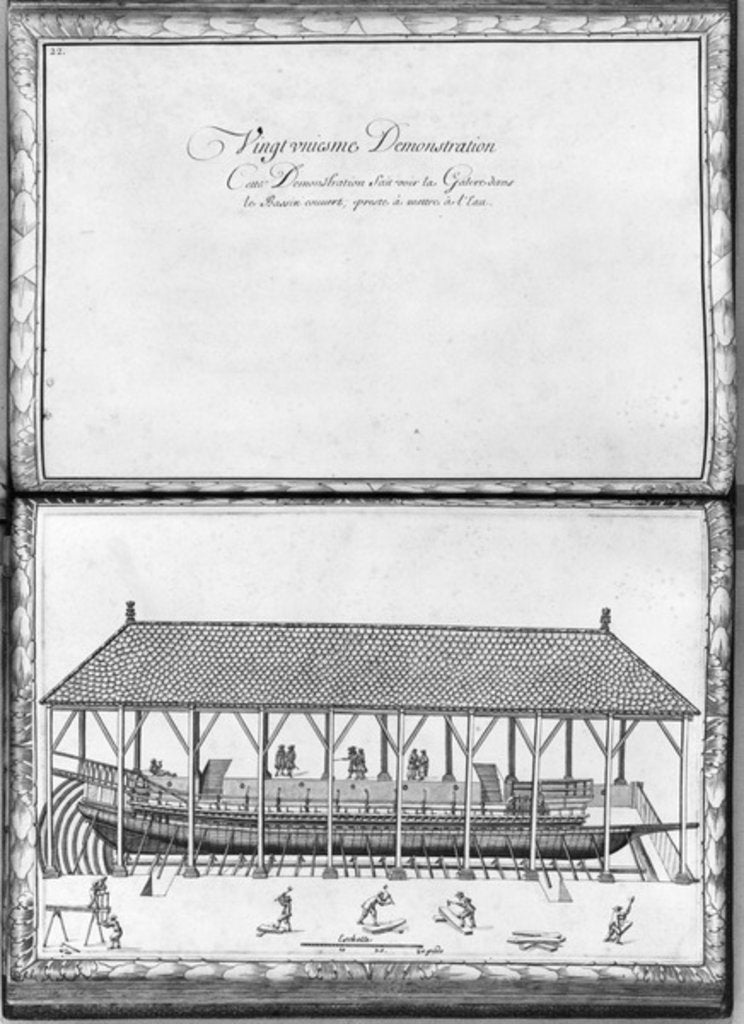 22.
Vingt vniesme Demonstration
Cette Demonstration fait voir la Galere dans
le Bassin couvert, preste à mettre à l'Eau.
Eschelle